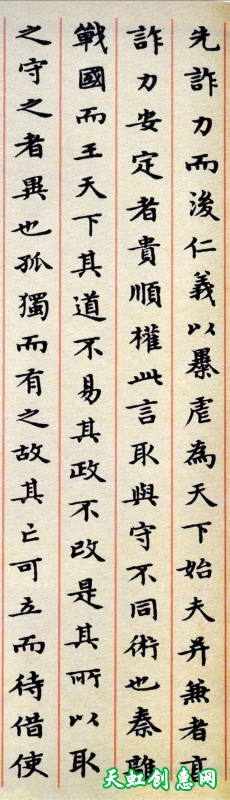 先詐力而後仁義以暴虐為天下始夫并兼者高
詐力安定者貴順權此言取與守不同術也秦雖
戰國而王天下其道不易其政不改是其所以取
之守之者異也孤獨而有之故其亡可立而待借使
天虹创意网